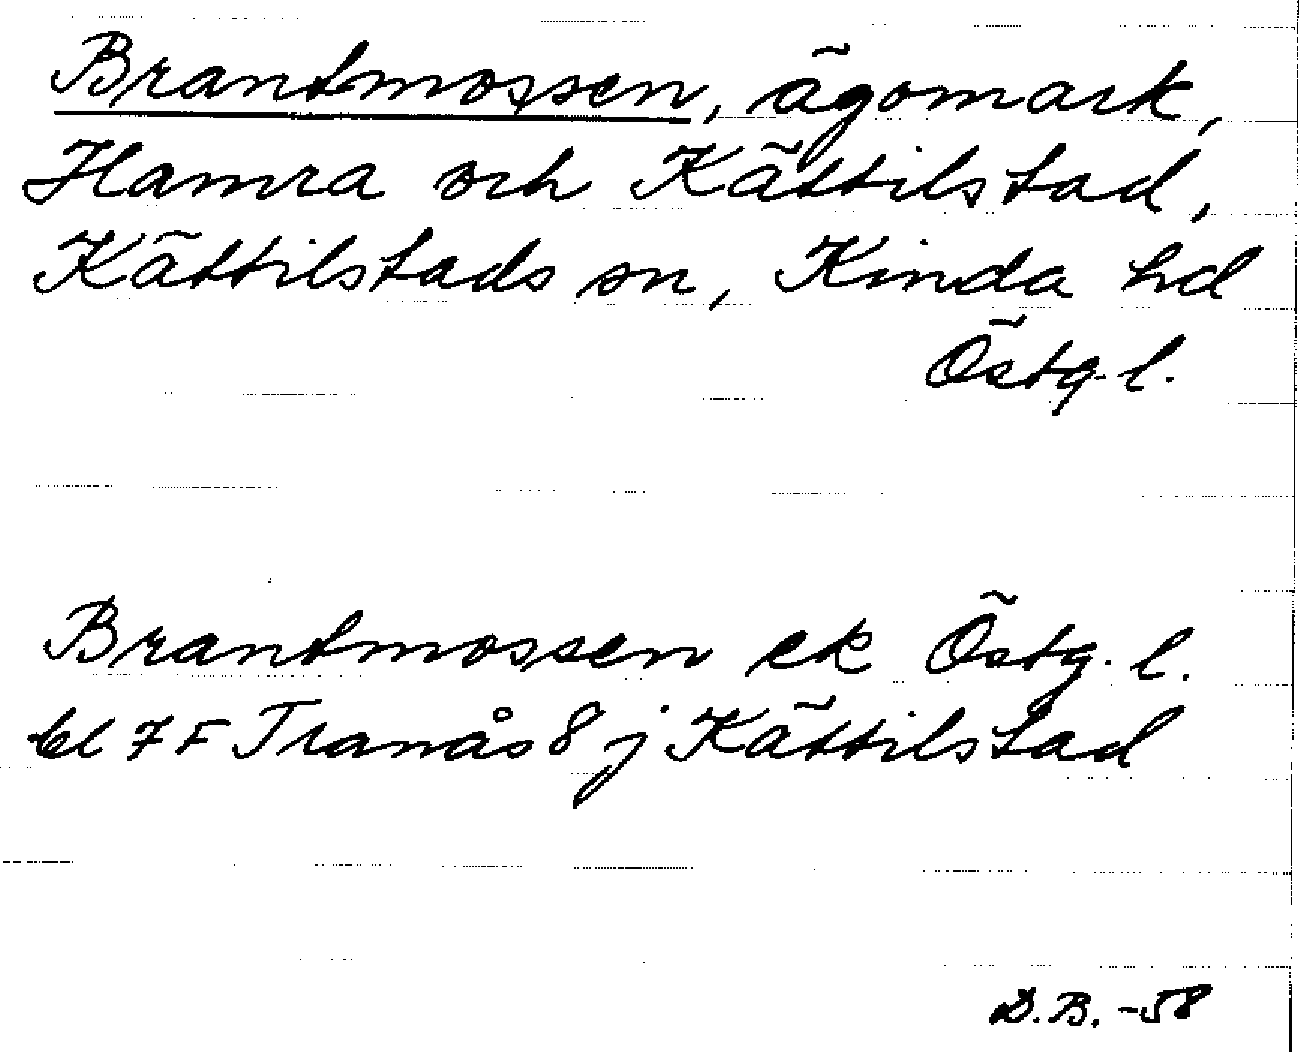 Brantmossen, ägomark,
Hamra och Kättilstad,
Kättilstads sn, Kinda hd
Östg. l.
Brantmossen ek Östg. l.
bl 7 F Tranås 8 j Kättilstad
D.B. -58